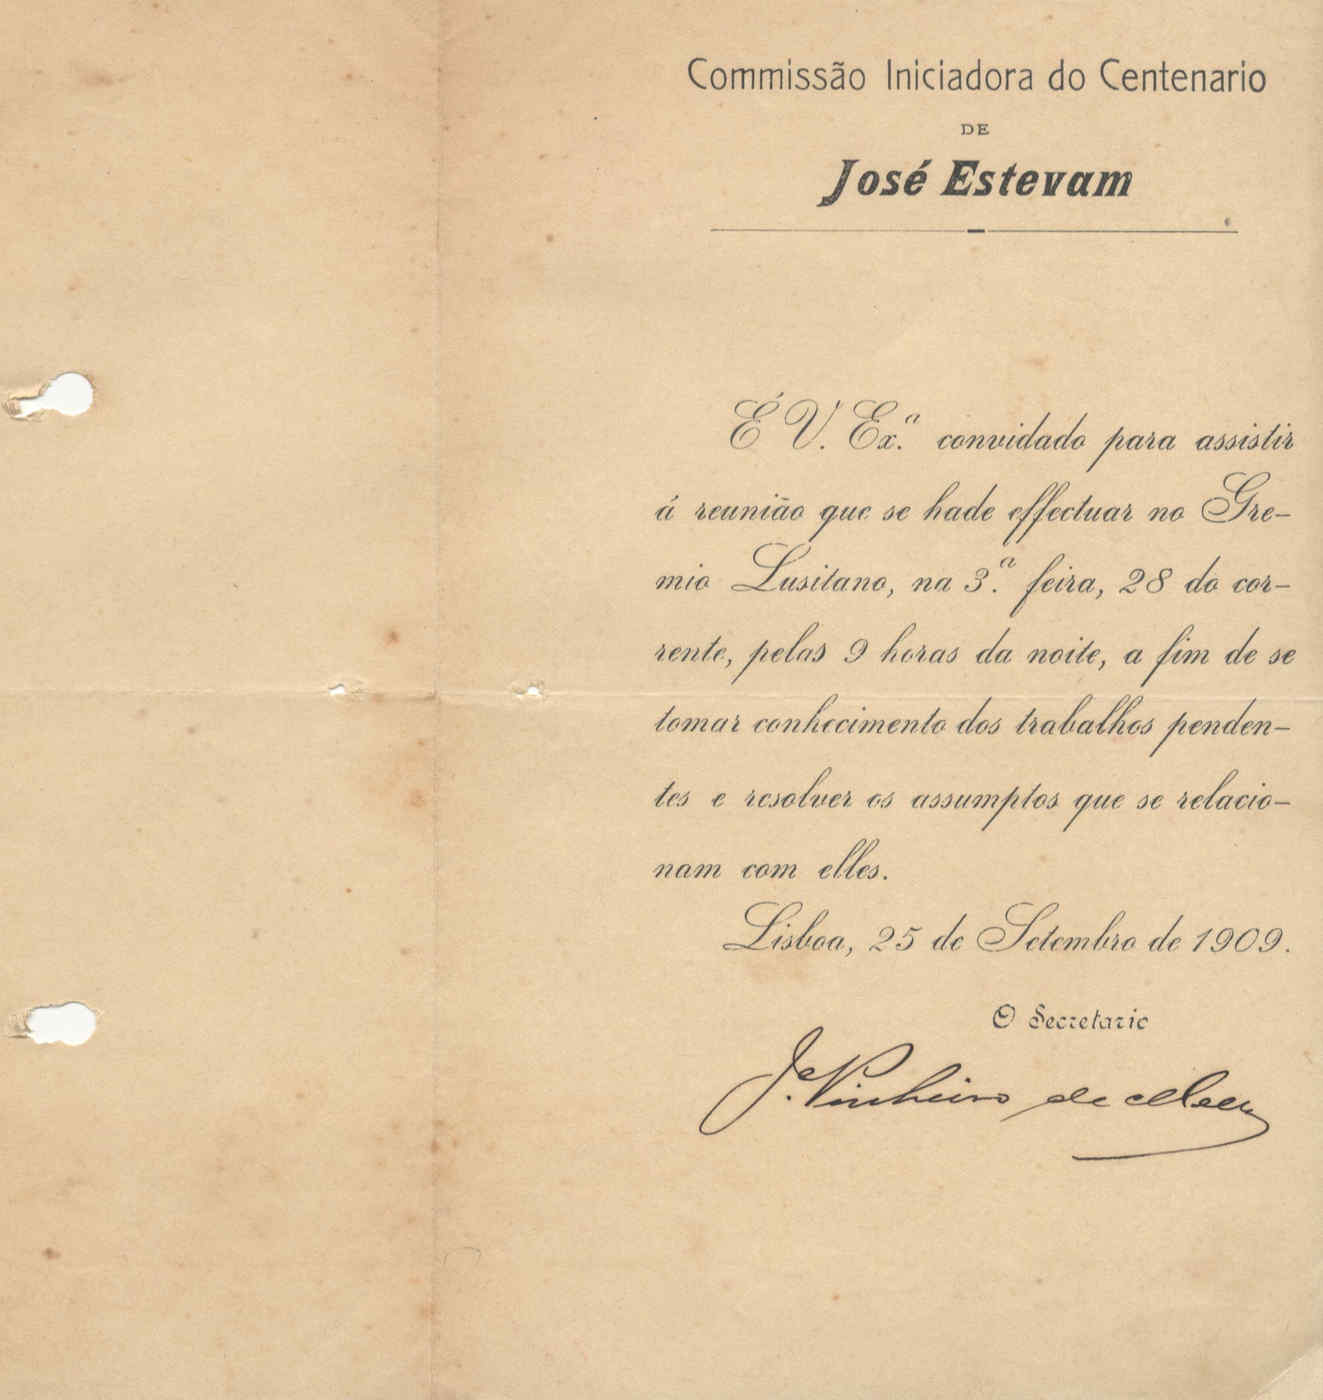 Commissão Iniciadora do Centenario
DE
José Estevam
É V. Ex.ª convidado para assistir
á reunião que se hade effectuar no Gre-
mio Lusitano, na 3.ª feira, 28 do cor-
rente, pelas 9 horas da noite, a fim de se
tomar conhecimento dos trabalhos penden-
tes e resolver os assumptos que se relacio-
nam com elles.
Lisboa, 25 de Setembro de 1909.
O Secretario
J. Pinheiro de